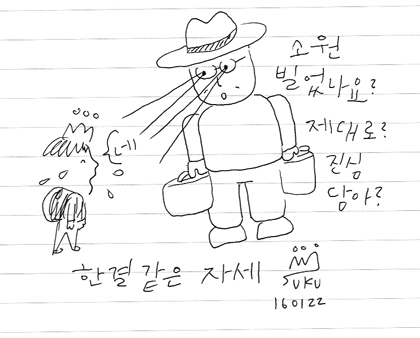 소원
빌었나요?
제대로?
진심
담아?
네
한결 같은 자세
SUKU
160122